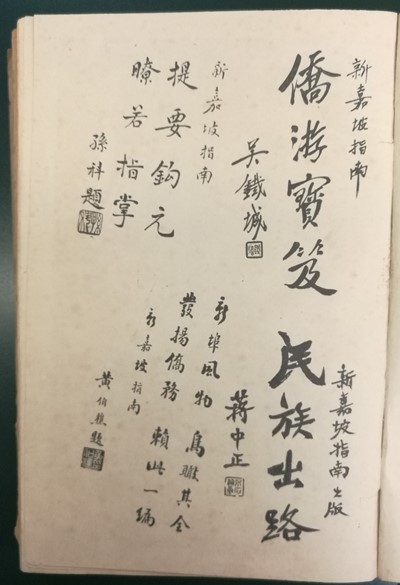 新嘉坡指南
僑游寶笈
吳鐵城
新嘉坡指南出版
民族出路
蔣中正
新嘉坡指南
提要鈎元
瞭若指掌
孫科題
新埠風物 鳥瞰其全
發揚僑務 賴此一編
新嘉坡指南
黃伯樵題